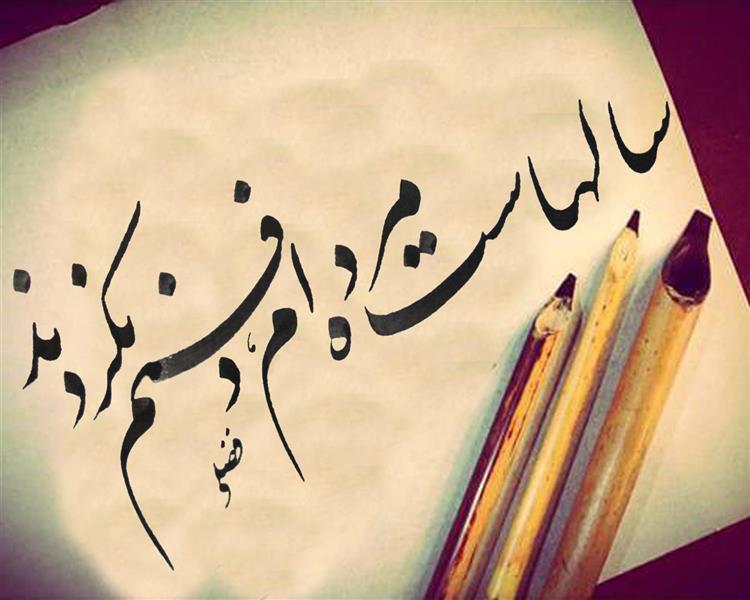 سالهاست مرده ام، دفنم نکردند
فضلی